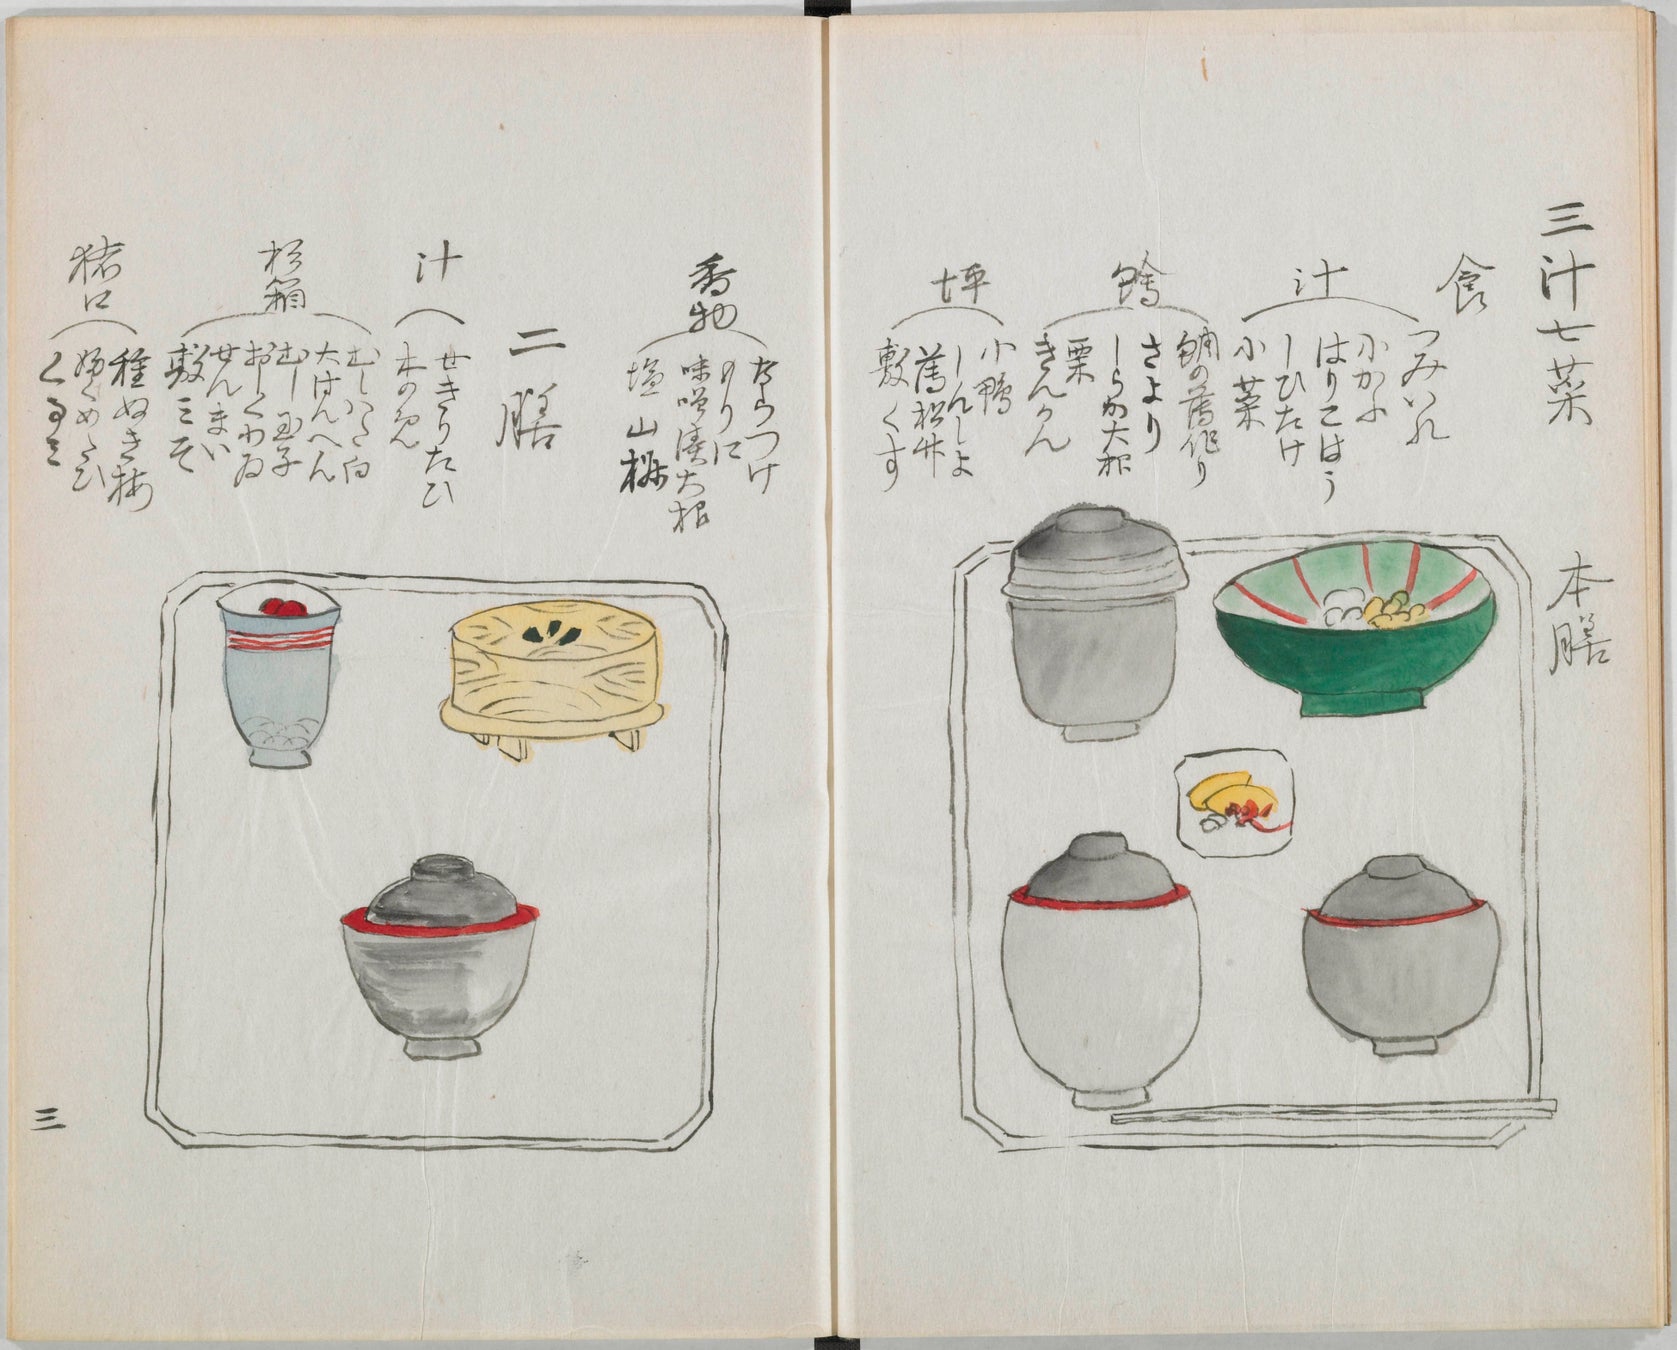 三汁七菜
本膳
食
汁
つみいれ
小かふ
はりこほう
しひたけ
小菜
鱠
鯛の薄作り
さより
しらか大根
栗
きんかん
坪
小鴨
しんしよ
薄松茸
敷くす
香物
ならつけ
もりに
味噌漬大根
塩山椒
二膳
汁
せきりたひ
木のめ
杉箱
大はんへん
むし玉子
おしくわゐ
せんまい
敷みそ
猪口
種ぬき梅
くるみ
三